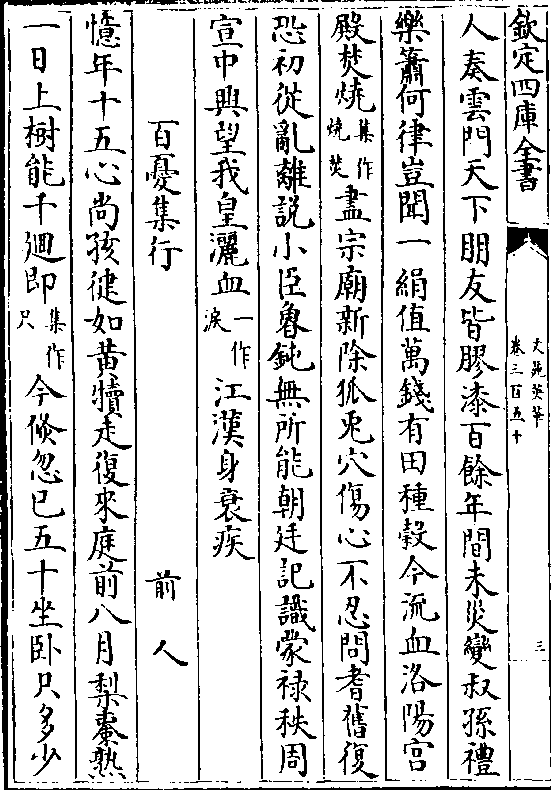 欽定四庫全書
文苑英華
卷三百五十
三
人奏雲門天下朋友皆膠漆百餘年間未災變叔孫禮
樂蕭何律豈聞一絹值萬錢有田種穀今流血洛陽宮
殿焚燒集作燒焚盡宗廟新除狐兎穴傷心不忍問耆舊復
恐初從亂離說小臣魯鈍無所能朝廷記識蒙祿秩周
宣中興望我皇灑血一作淚江漢身衰疾
百憂集行 前人
憶年十五心尚孩徤如黃犢走復來庭前八月梨棗熟
一日上樹能千廻即集作只今倐忽已五十坐卧只多少